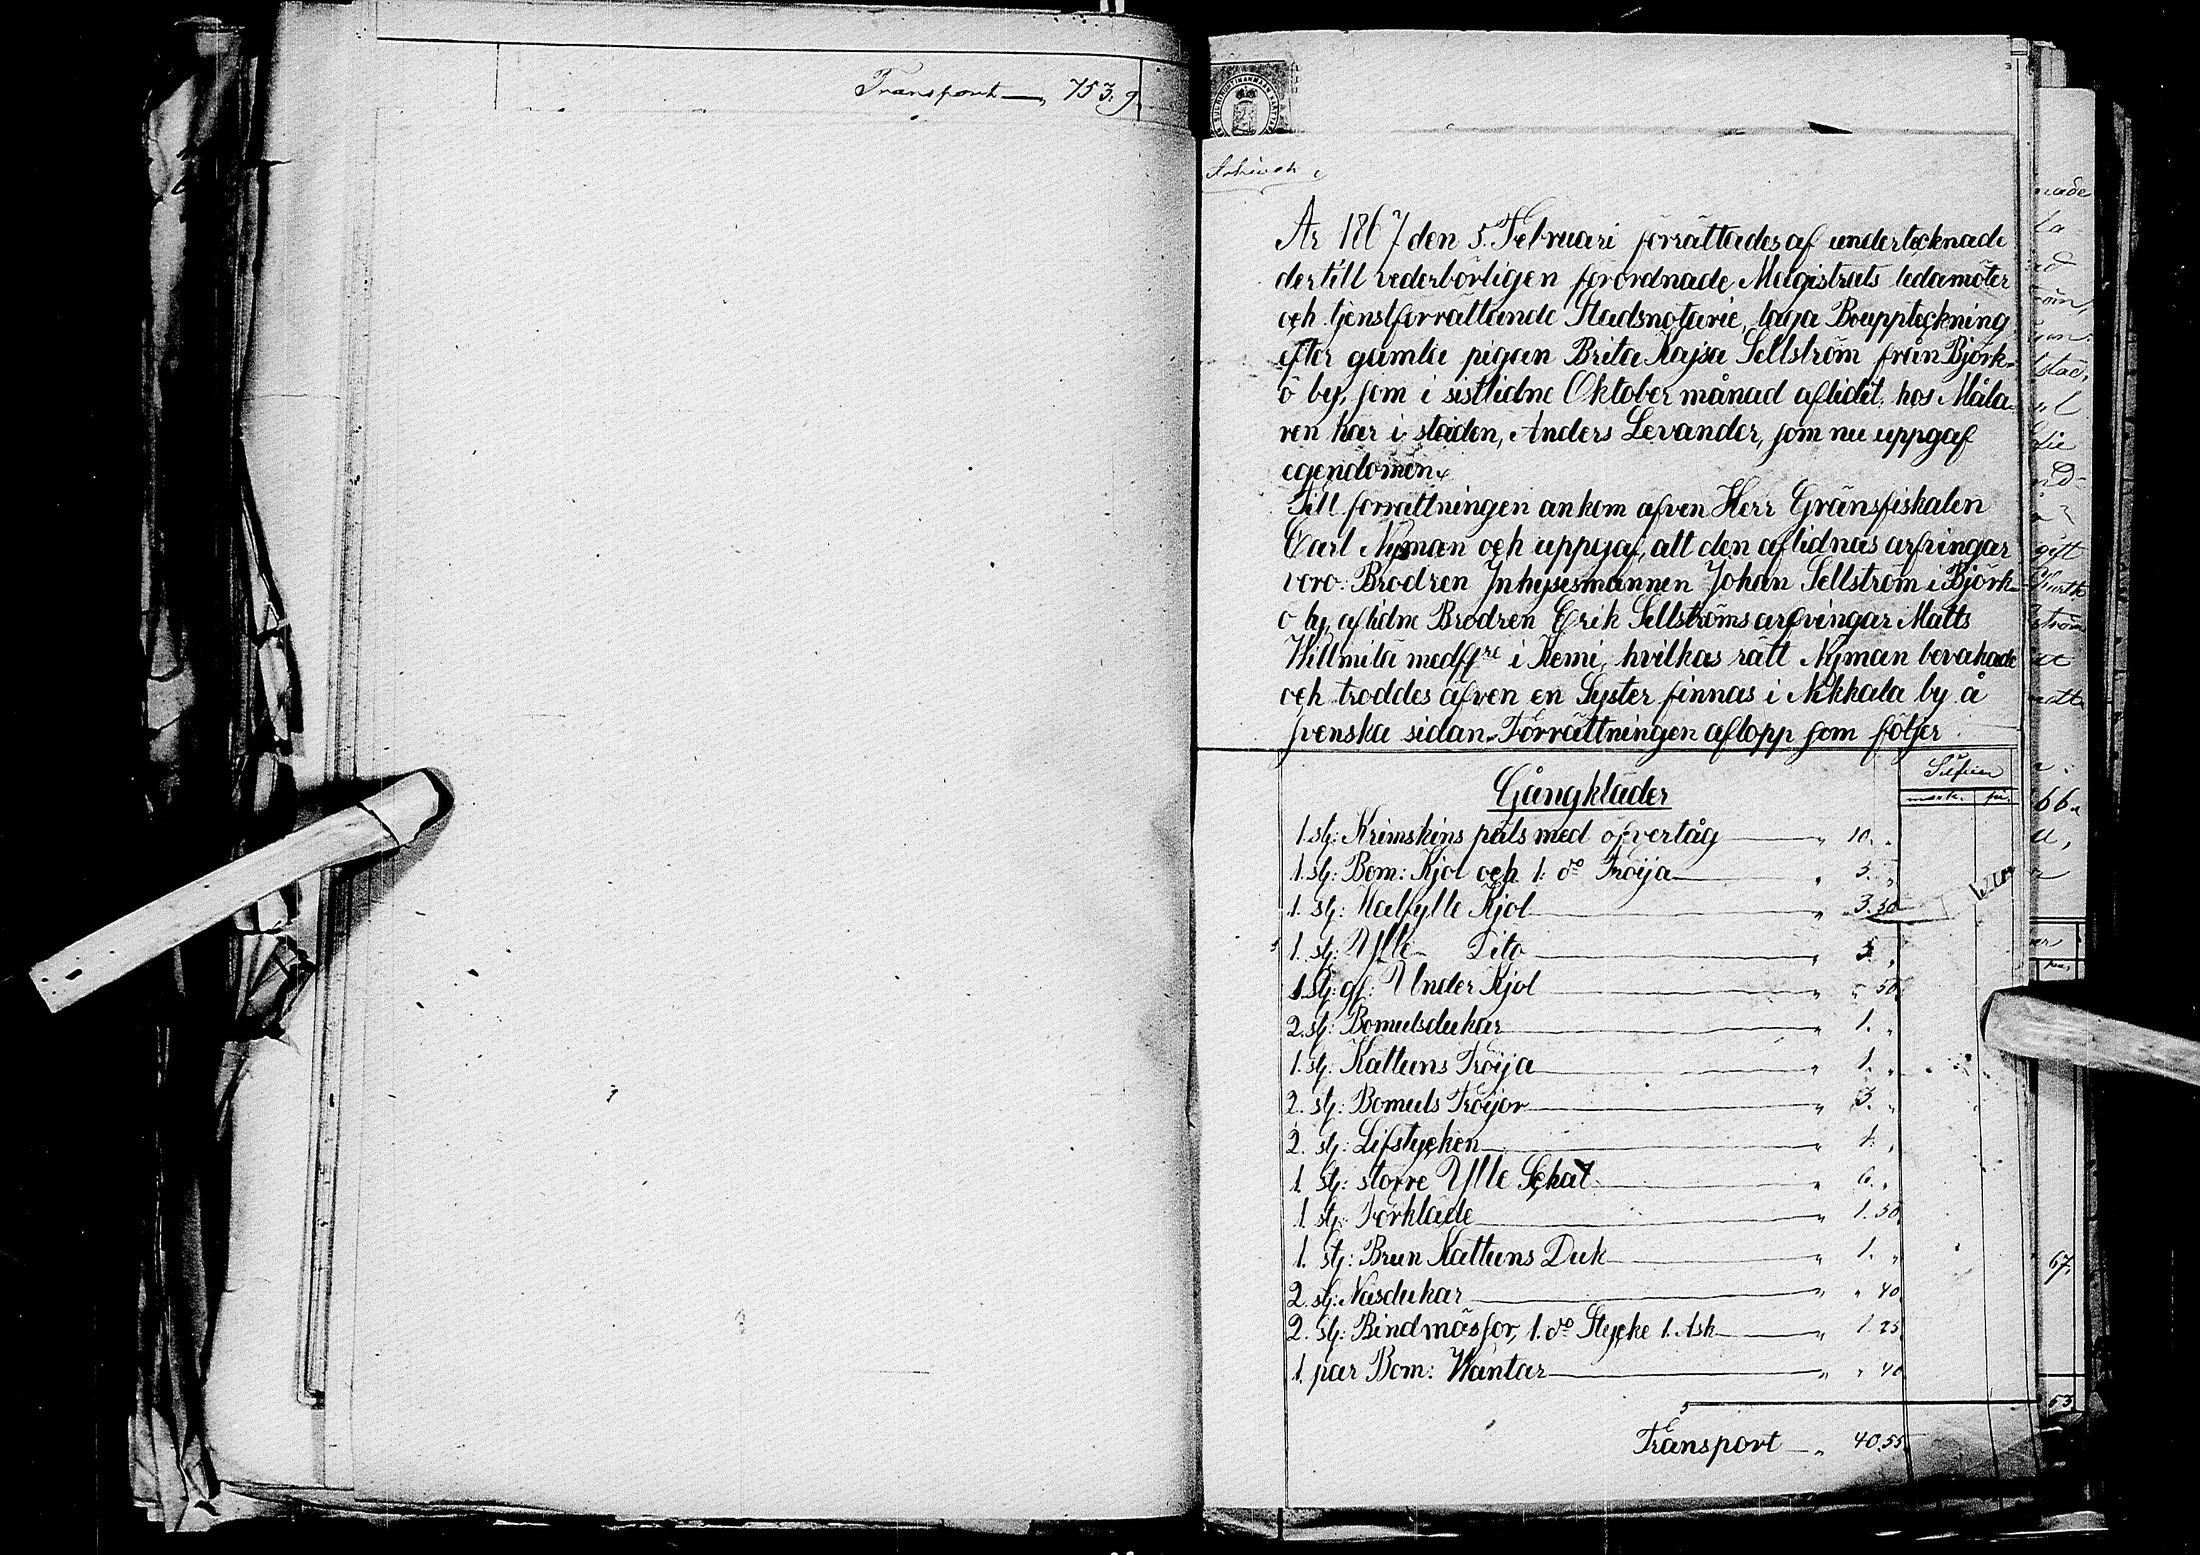 Transport — " 753. 9
År 1867 den 5. Februari förrättades af undertecknade
dertill vederbörligen förordnade Magistrats ledamöter
och tjenstförrättande Stadsnotarie, laga Bouppteckning
efter gamla pigan Brita Kajsa Sellström från Björk-
ö by, som i sistlidne Oktober månad aflidit hos Måla-
ren här i staden, Anders Levander, som nu uppgaf
egendomen.
Till förrättningen ankom äfven Herr Gränsfiskalen
Carl Nyman och uppgaf, att den aflidnas arfvingar
voro: Brodren Inhysesmannen Johan Sellström i Björk-
ö by, aflidne Brodren Erik Sellströms arfvingar Matts
Willmila med fl:re i Kemi, hvilkas rätt Nyman bevakade
och troddes äfven en Syster finnas i Nikkala by å
svenska sidan. Förrättningen aflopp som följer:
Silfver
mark. pi.
Gångkläder
1. st: Krimskins päls med öfvertåg — " 10. "
1. st: Bom: Kjol och 1. do Tröija — " 5. "
1. st: Halfylle Kjol — " 3. 50
1. st: Ylle Dito — " 5. "
1. st: gf: Under Kjol — " " 50
2. st: Bomulsdukar — " 1. "
1. st: Kattuns Tröija — " 1. "
2. st: Bomuls Tröijor — " 3. "
2. st: Lifstycken — " 1. "
1. st: större Ylle Schal — " 6. "
1. st: Förkläde — " 1. 50
1. st: Brun Kattuns Duk — " 1. "
2. st: Näsdukar — " " 40
2. st: Bindmössor, 1. do Stycke 1. Ask — " 1. 25
1. par Bom: Wantar — " " 40
Transport — " 40. 55